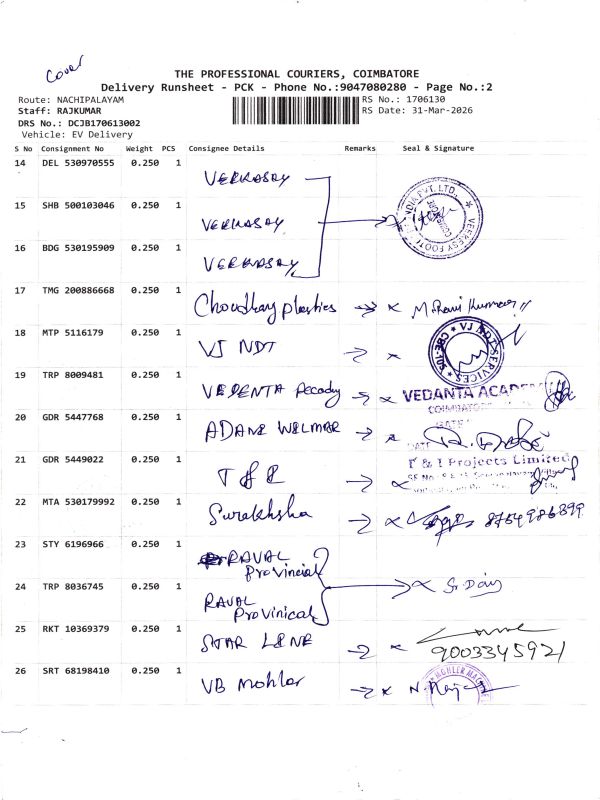 Cover
THE PROFESSIONAL COURIERS, COIMBATORE
Delivery Runsheet - PCK - Phone No.:9047080280 - Page No.:2
Route: NACHIPALAYAM
Staff: RAJKUMAR
DRS No.: DCJB170613002
Vehicle: EV Delivery
RS No.: 1706130
RS Date: 31-Mar-2026
S No Consignment No Weight PCS Consignee Details Remarks Seal & Signature
14 DEL 530970555 0.250 1
15 SHB 500103046 0.250 1
16 BDG 530195909 0.250 1
17 TMG 200886668 0.250 1 Choudhary plastics
18 MTP 5116179 0.250 1 VJ NDT VJ NDT SERVICES
19 TRP 8009481 0.250 1 VEDENTA VEDANTA
20 GDR 5447768 0.250 1 ADANE WELMAR
21 GDR 5449022 0.250 1 T & I Projects Limited
22 MTA 530179992 0.250 1 Surakhsha 8754986399
23 STY 6196966 0.250 1 RAVAL
Provincial
24 TRP 8036745 0.250 1 RAVAL
Provinical
25 RKT 10369379 0.250 1 STAR LINE
9003345921
26 SRT 68198410 0.250 1 VB Mohler